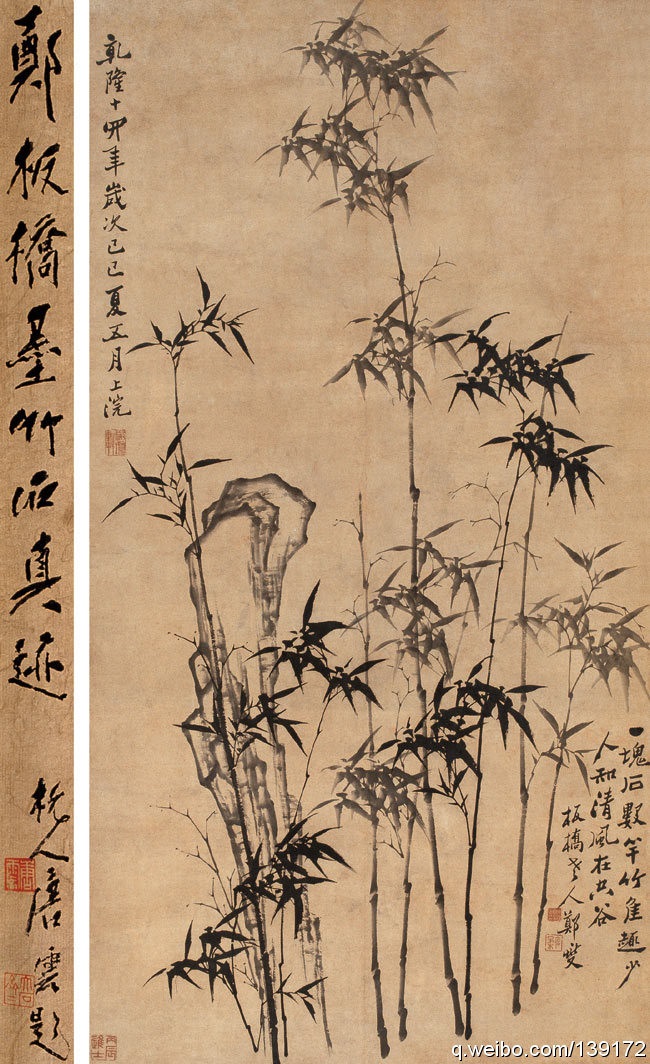 鄭板橋墨竹石真迹
杭人唐雲題
乾隆十四年歲次己巳夏五月上浣
一塊石數竿竹佳趣少
人知清風在空谷
板橋老人鄭燮
丙辰進士
q.weibo.com/139172